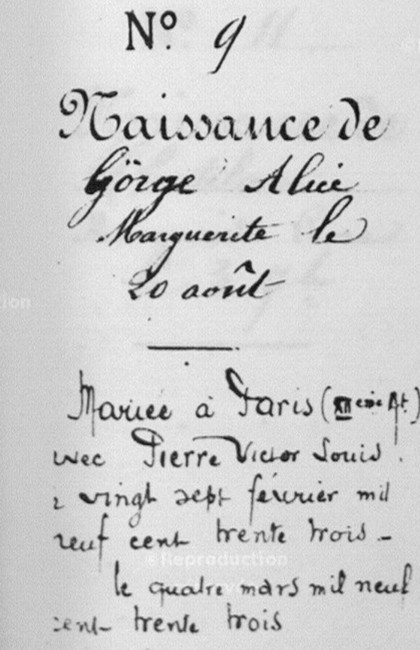 N° 9
Naissance de
Görge Alice
Marguerite le
20 août
Mariée à Paris (XIIème At.)
avec Pierre Victor Louis.
le vingt sept février mil
neuf cent trente trois -
le quatre mars mil neuf
cent trente trois
Reproduction